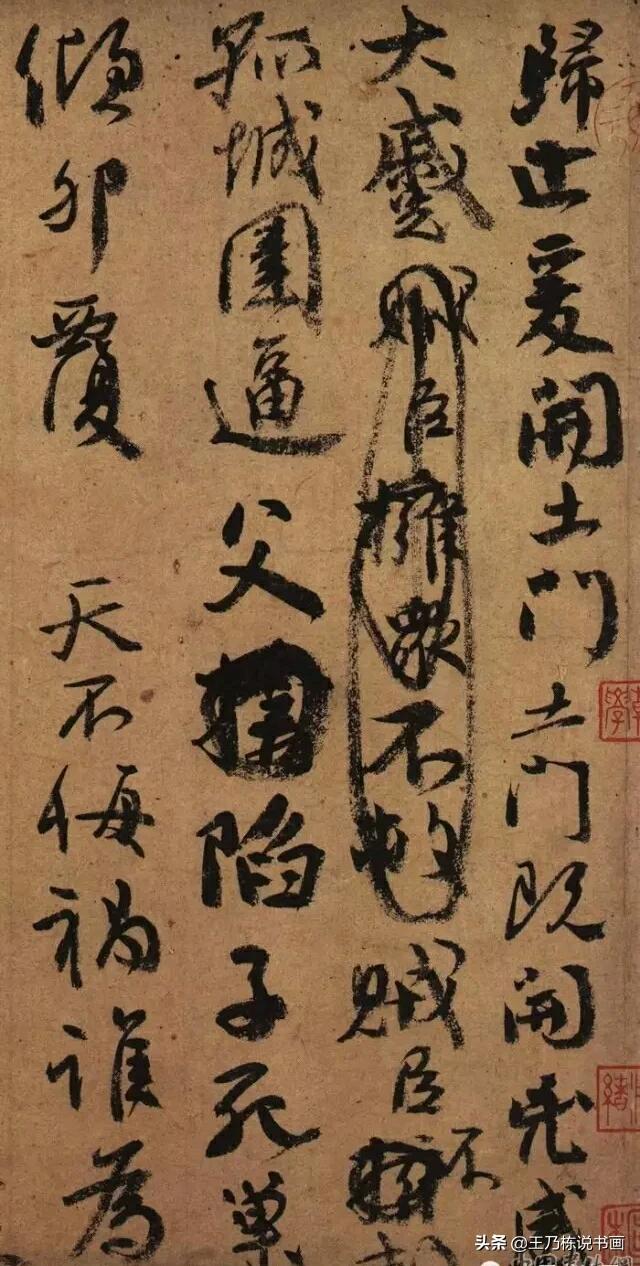 歸止爰開土門土門既開凶威
大蹙賊臣擁衆不救賊臣不救
孤城圍逼父陷子死巢
傾卵覆 天不悔禍誰為
头条 @王乃栋说书画